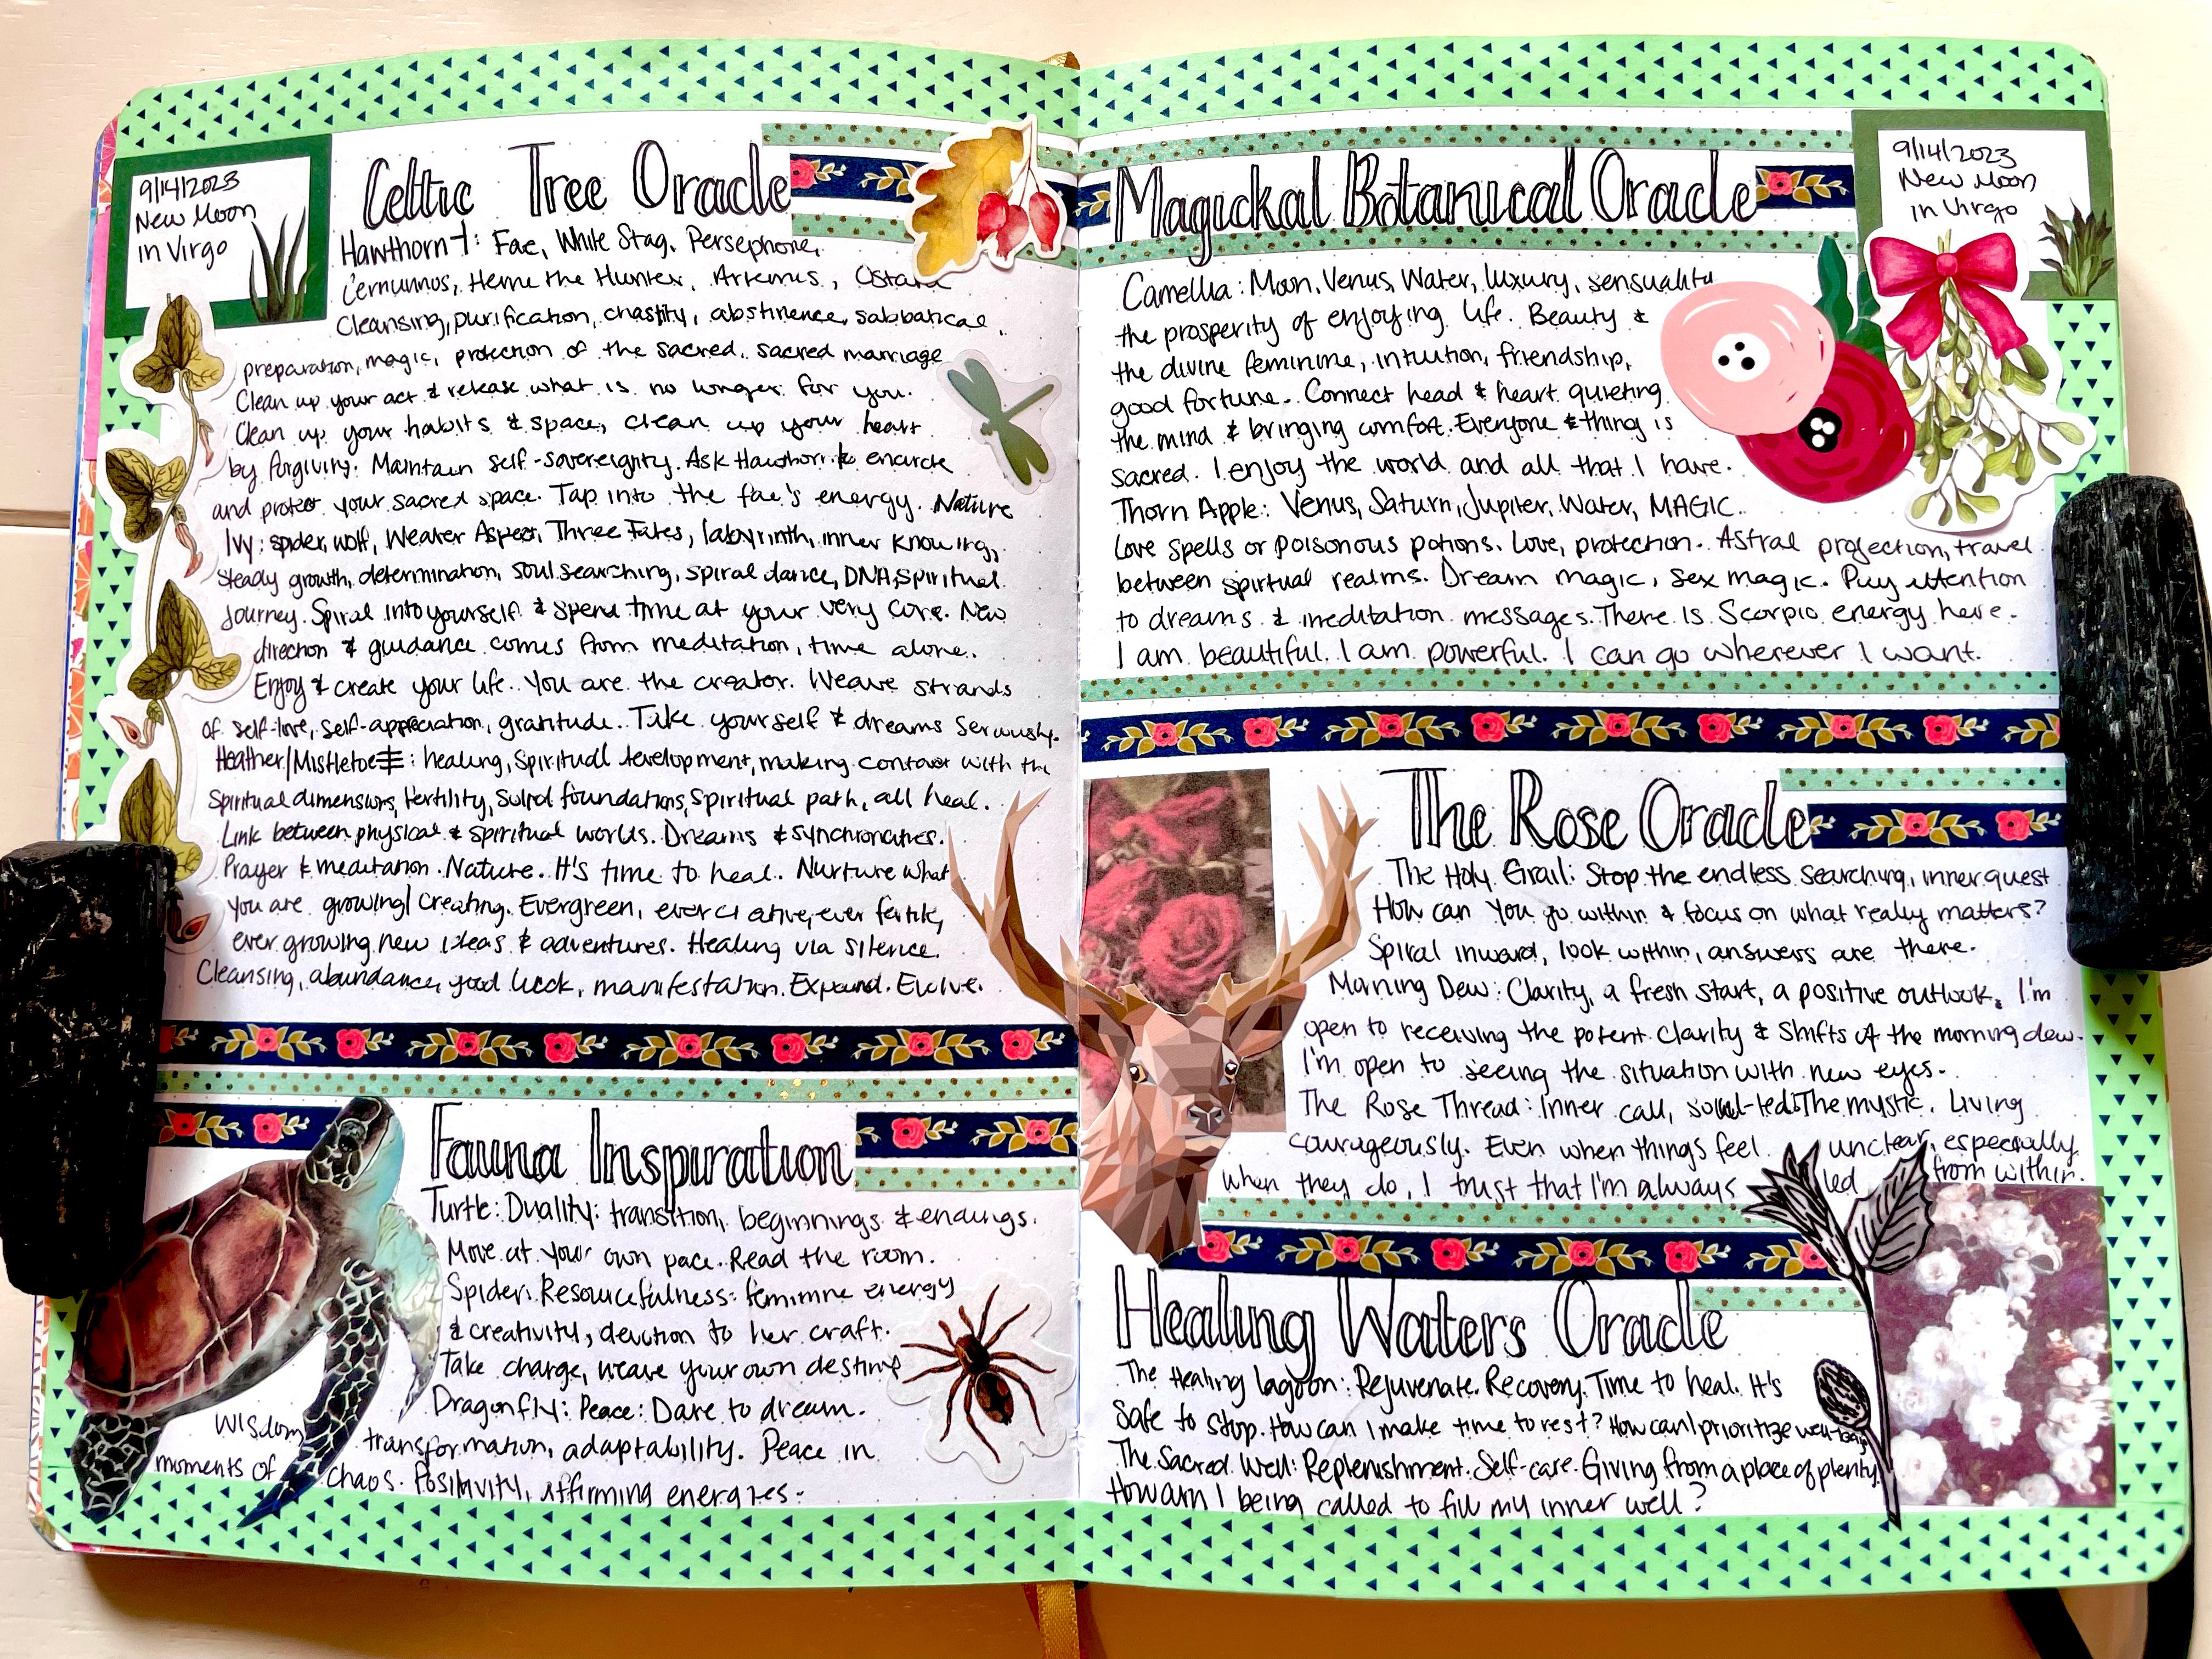 9/14/2023
New Moon
in Virgo
Celtic Tree Oracle
Hawthorn: Fae, White Stag, Persephone,
Cernunnos, Herne the Hunter, Artemis, Ostara
Cleansing, purification, chastity, abstinence, sabbatical,
preparation, magic, protection of the sacred, sacred marriage
Clean up your act & release what is no longer for you.
Clean up your habits & space, clean up your heart
by forgiving. Maintain self-sovereignty. Ask Hawthorn to encircle
and protect your sacred space. Tap into the fae's energy. Nature
Ivy: spider, wolf, Weaver Aspect, Three Fates, labyrinth, inner knowing,
steady growth, determination, soul searching, spiral dance, DNA, Spiritual
Journey. Spiral into yourself & spend time at your very core. New
direction & guidance comes from meditation, time alone.
Enjoy & create your life. You are the creator. Weave strands
of self-love, self-appreciation, gratitude. Take yourself & dreams seriously.
Heather/Mistletoe: healing, Spiritual development, making contact with the
Spiritual dimensions, fertility, Solid foundations, Spiritual path, all heal.
Link between physical & spiritual worlds. Dreams & synchronicities.
Prayer & meditation. Nature. It's time to heal. Nurture what
you are growing/creating. Evergreen, ever creative, ever fertile,
ever growing new ideas & adventures. Healing via silence.
Cleansing, abundance, good luck, manifestation. Expand. Evolve.
Fauna Inspiration
Turtle: Duality: transition, beginnings & endings.
Move at your own pace. Read the room.
Spider: Resourcefulness: feminine energy
& creativity, devotion to her craft.
Take charge, weave your own destiny
Dragonfly: Peace: Dare to dream.
Wisdom, transformation, adaptability. Peace in
moments of chaos. Positivity, affirming energies.
9/14/2023
New Moon
in Virgo
Magickal Botanical Oracle
Camellia: Moon, Venus, Water, luxury, sensuality
the prosperity of enjoying life. Beauty &
the divine feminine, intuition, friendship,
good fortune. Connect head & heart quieting
the mind & bringing comfort. Everyone & thing is
sacred. I enjoy the world and all that I have.
Thorn Apple: Venus, Saturn, Jupiter, Water, MAGIC.
Love spells or poisonous potions. Love, protection. Astral projection, travel
between spiritual realms. Dream magic, sex magic. Pay attention
to dreams & meditation messages. There is Scorpio energy here.
I am beautiful. I am powerful. I can go wherever I want.
The Rose Oracle
The Holy Grail: Stop the endless searching, inner quest
How can you go within & focus on what really matters?
Spiral inward, look within, answers are there.
Morning Dew: Clarity, a fresh start, a positive outlook. I'm
open to receiving the potent clarity & shifts of the morning dew.
I'm open to seeing the situation with new eyes.
The Rose Thread: Inner call, soul-led. The mystic. Living
courageously. Even when things feel unclear, especially
when they do, I trust that I'm always led from within.
Healing Waters Oracle
The Healing Lagoon: Rejuvenate. Recovery. Time to heal. It's
safe to stop. How can I make time to rest? How can I prioritize well-being
The Sacred Well: Replenishment. Self-care. Giving from a place of plenty.
How am I being called to fill my inner well?